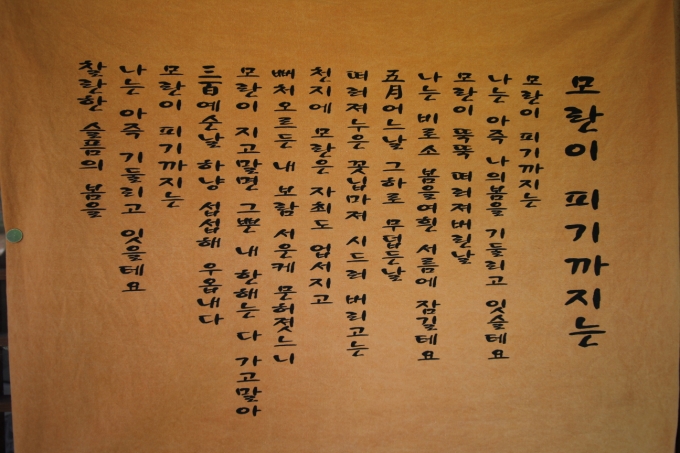 모란이 피기까지는
모란이 피기까지는
나는 아즉 나의봄을 기둘리고 잇슬테요
모란이 뚝뚝 떠러져버린날
나는 비로소 봄을여흰 서름에 잠길테요
五月어느날 그하로 무덥든날
떠러져누은 꽃닙마저 시드러 버리고는
천지에 모란은 자최도 업서지고
뻐처오르든 내 보람 서운케 문허졋느니
모란이 지고말면 그뿐 내 한해는 다 가고말아
三百예순날 하냥 섭섭해 우옵내다
모란이 피기까지는
나는 아즉 기둘리고 잇을테요
찰란한 슬픔의 봄을